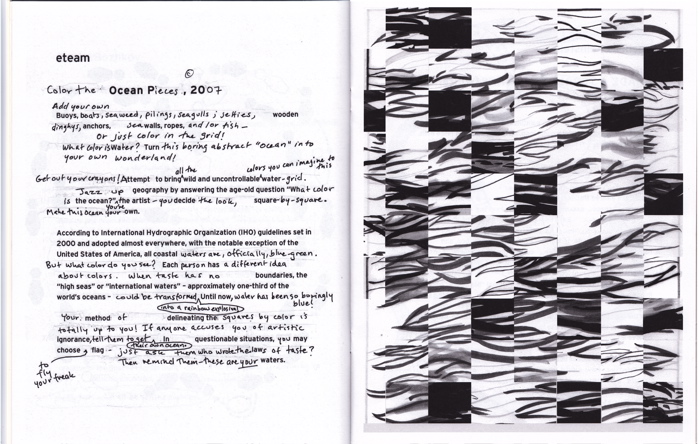 eteam
©
Color the Ocean Pieces, 2007
Add your own
Buoys, boats, seaweed, pilings, seagulls, jetties, wooden
dinghys, anchors, sea walls, ropes, and/or fish –
Or just color in the grid!
What color is Water? Turn this boring abstract "ocean" into
your own wonderland!
all the colors you can imagine to
Get out your crayons! Attempt to bring wild and uncontrollable water-grid. this
Jazz up geography by answering the age-old question "What color
is the ocean?" you're the artist – you decide the look, square-by-square.
Make this ocean your own.
According to International Hydrographic Organization (IHO) guidelines set in
2000 and adopted almost everywhere, with the notable exception of the
United States of America, all coastal waters are, officially, blue-green.
But what color do you see? Each person has a different idea
about colors. When taste has no boundaries, the
"high seas" or "international waters" – approximately one-third of the
world's oceans – could be transformed. Until now, water has been so boringly
into a rainbow explosion blue!
Your method of delineating the squares by color is
totally up to you! If anyone accuses you of artistic
ignorance, tell them to get In questionable situations, you may
their own ocean.
choose a flag – just ask them who wrote the laws of taste?
to fly your freak
Then remind them – these are your waters.